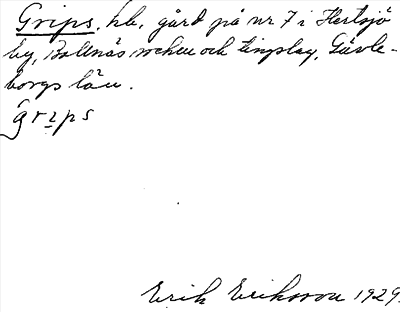 Grips, hb, gård på nr 7 i Hertsjö
by, Bollnäs socken och tingslag, Gävle-
borgs län.
grips
Erik Eriksson 1929.